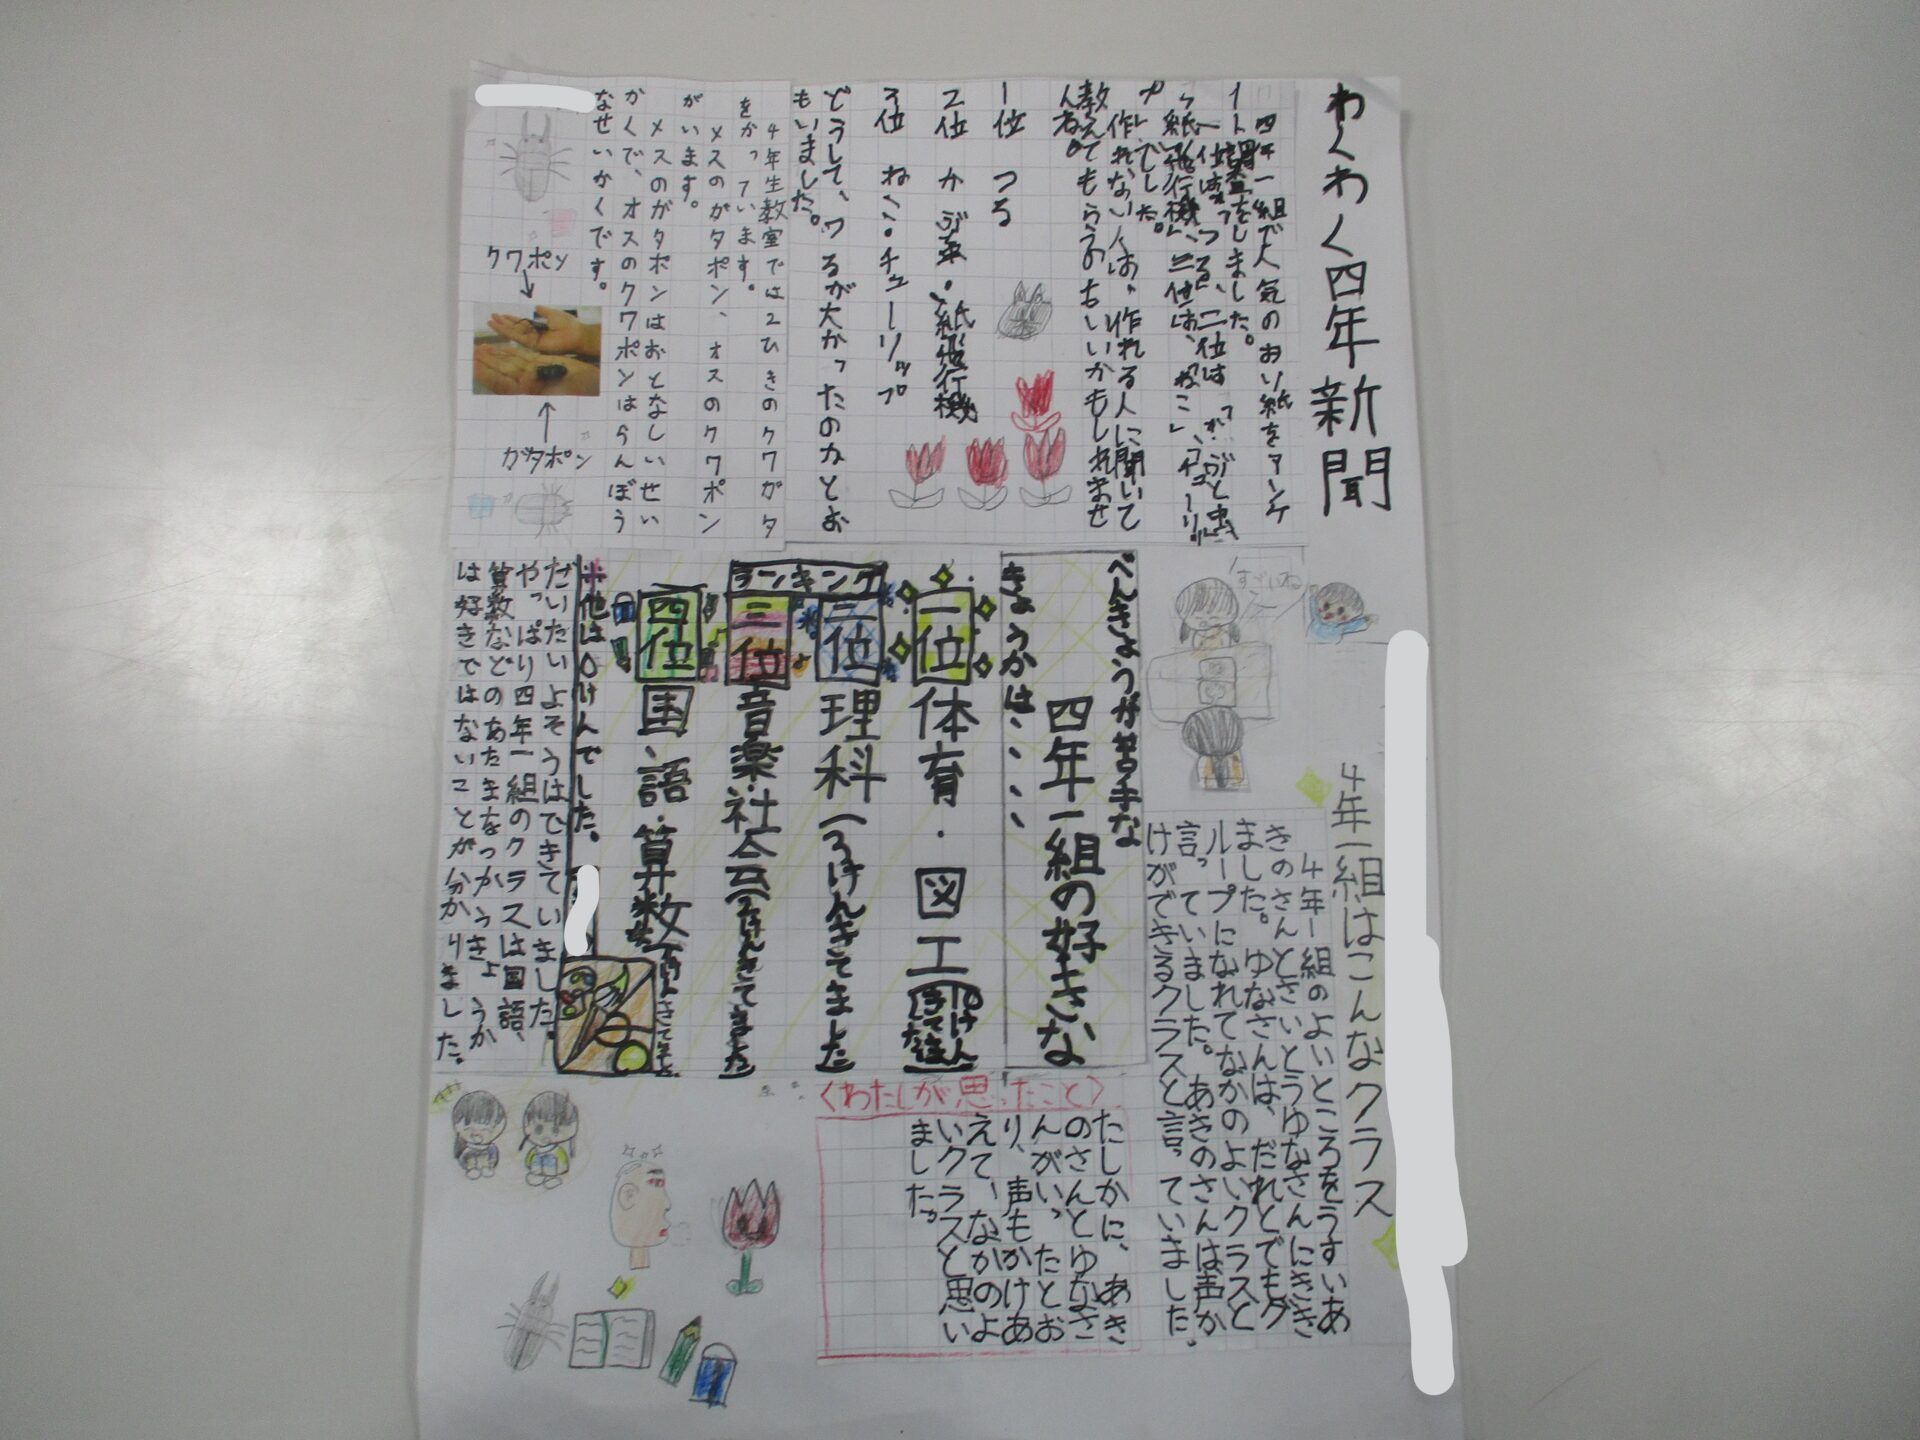 わくわく四年新聞
四年一組で人気のおり紙をアンケ
ート調査をしました。
一位は「つる」、二位は「かぶと虫」
「紙飛行機」、三位は、「ねこ」、「チューリッ
プ」でした。
作れない人は、作れる人に聞いて
教えてもらうのもいいかもしれませ
んね。
1位 つる
2位 かぶ虫・紙飛行機
3位 ねこ・チューリップ
どうして、つるが大かったのかとお
もいました。
4年生教室では2ひきのクワガタ
をかっています。
メスのガタポン、オスのクワポン
がいます。
メスのガタポンはおとなしいせい
かくで、オスのクワポンはらんぼう
なせいかくです。
クワポン
ガタポン
すごいね
4年一組はこんなクラス
4年一組のよいところをうすいあ
きのさんとさいとうゆなさんにきき
ました。ゆなさんは、だれとでもグ
ループになれてなかのよいクラスと
言っていました。あきのさんは声か
けができるクラスと言っていました。
べんきょうが苦手な
四年一組の好きな
きょうかは、、、、、
ランキング
一位 体育・図工
二位 理科
三位 音楽・社会
四位 国語・算数
※他は0けんでした。
だいたいよそうはできていました。
やっぱり四年一組のクラスは国語、
算数などのあたまをつかうきょうか
は好きではないことが分かりました。
〈わたしが思ったこと〉
たしかに、あき
のさんとゆなさ
んがいったとお
り、声もかけあ
えて、なかのよ
いクラスと思い
ました。